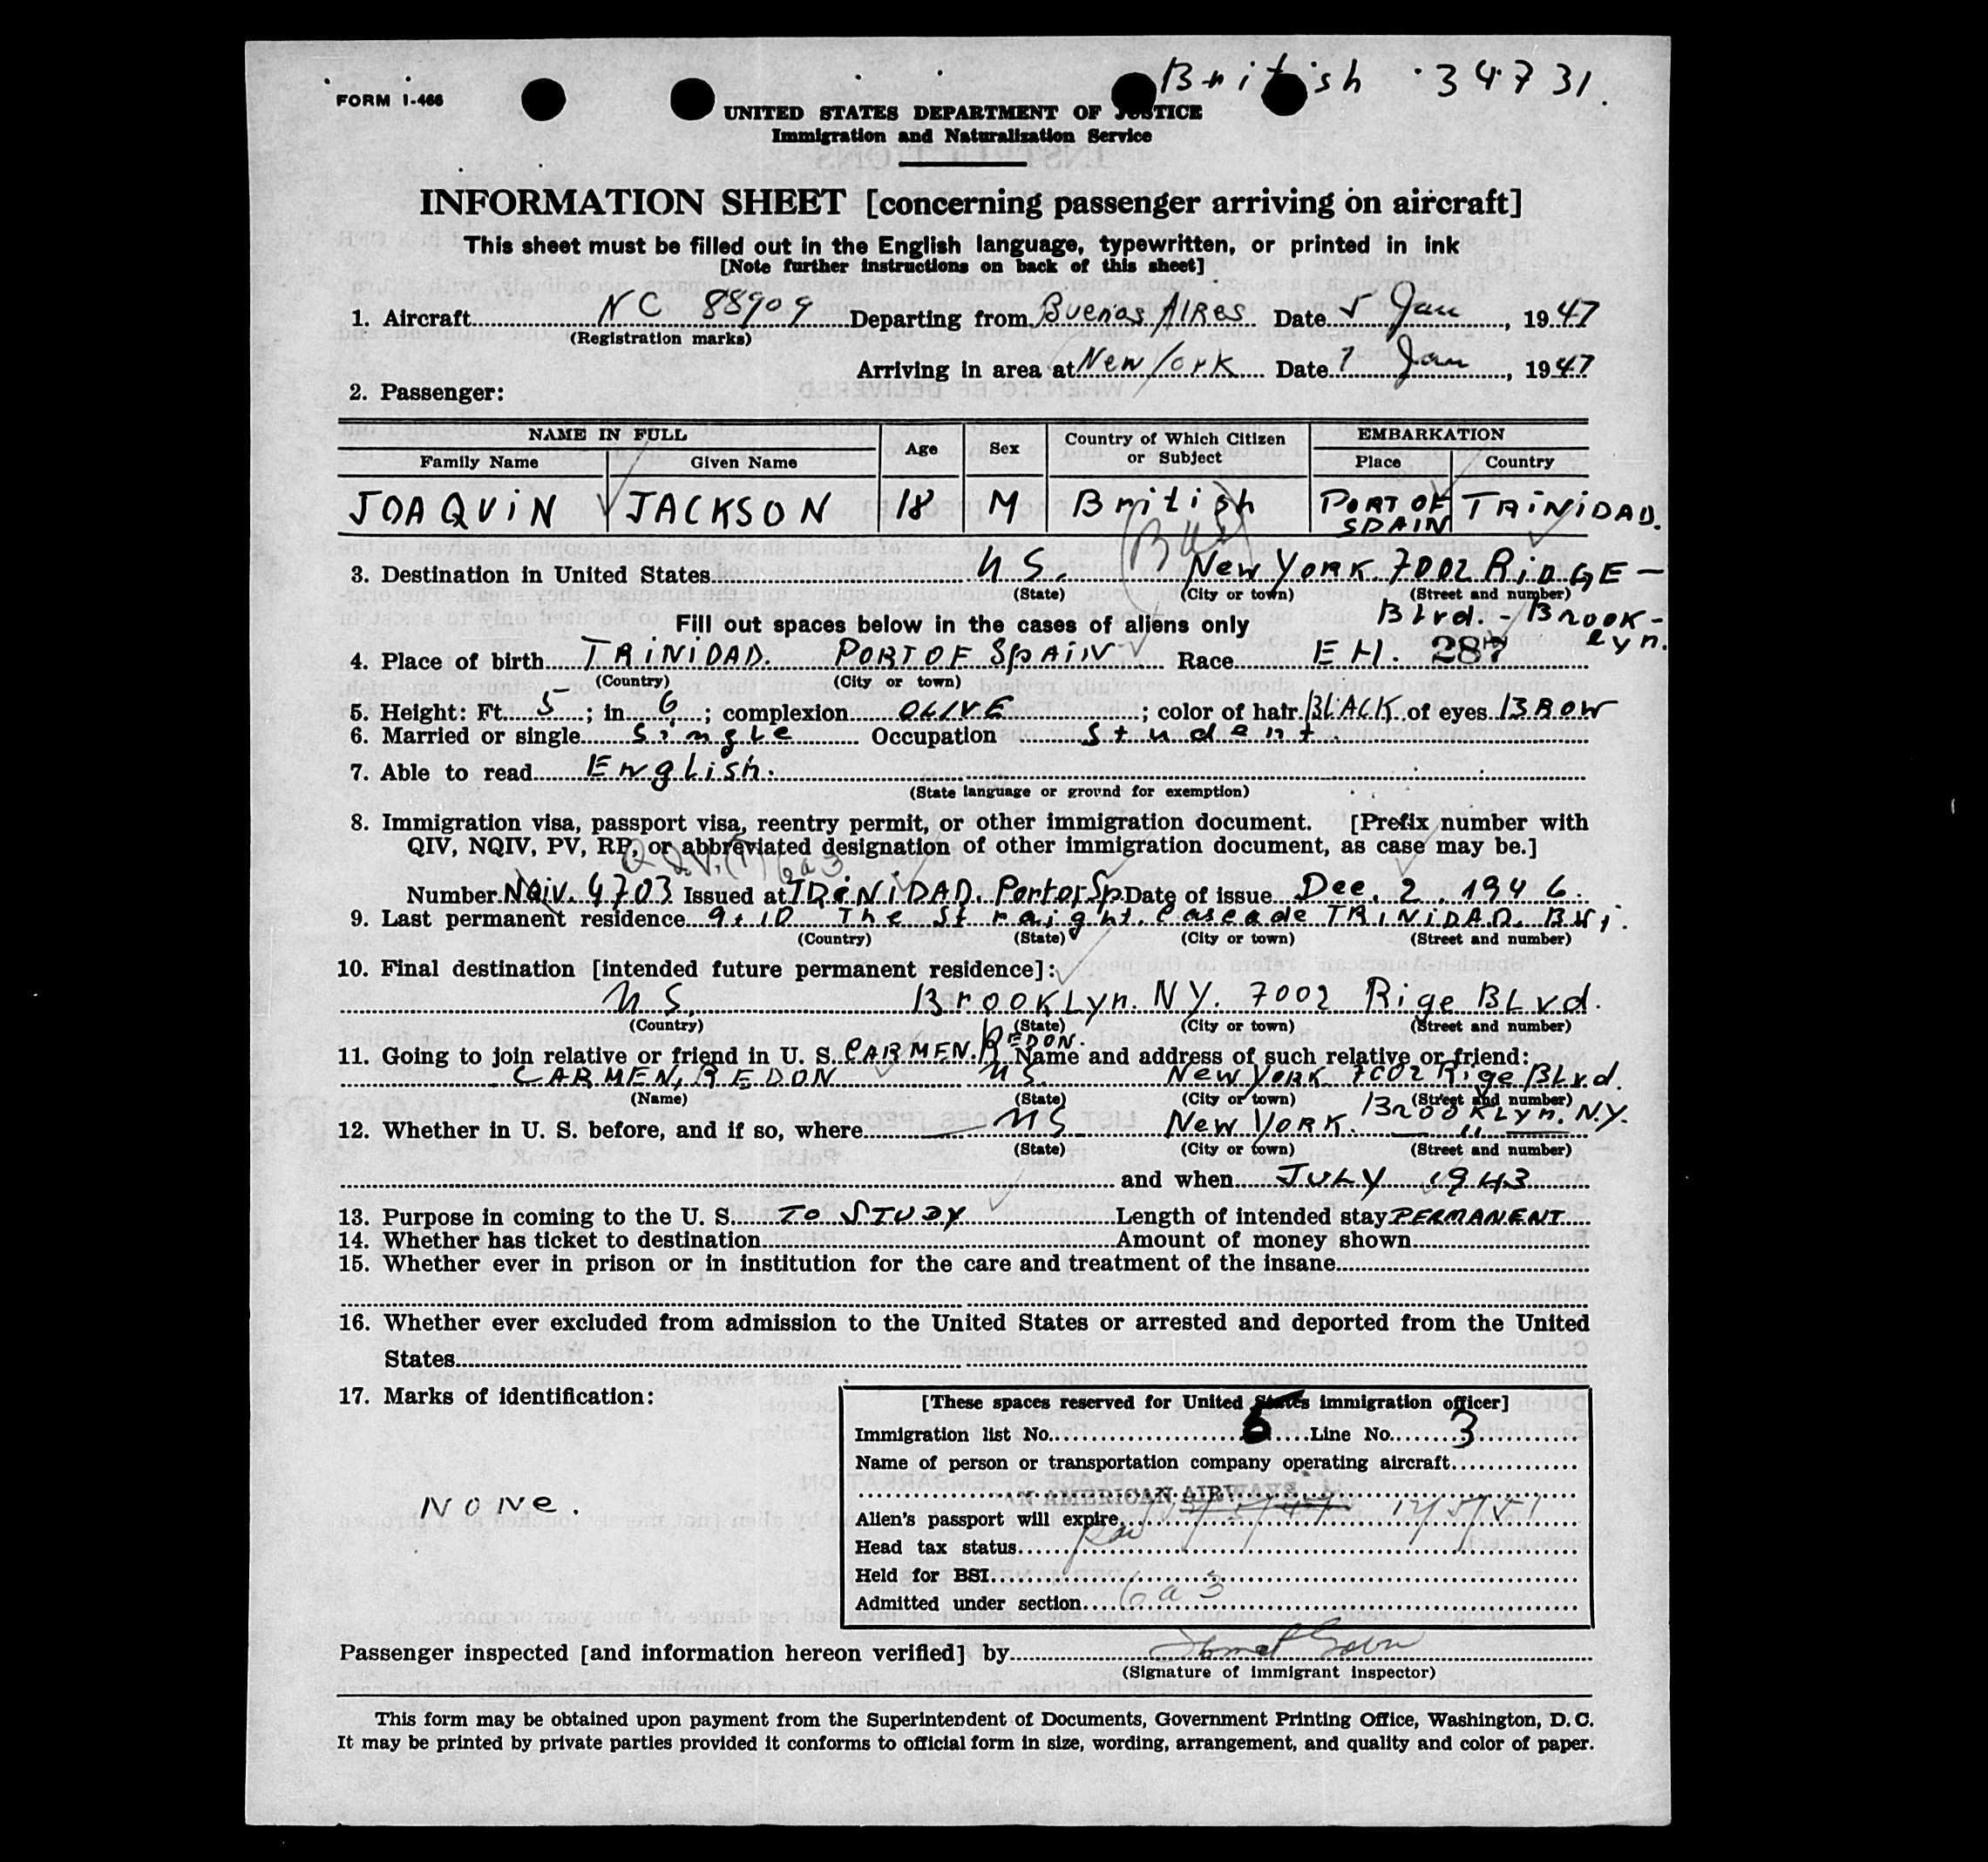 FORM I-466
British 34731.
UNITED STATES DEPARTMENT OF JUSTICE
Immigration and Naturalization Service
INFORMATION SHEET [concerning passenger arriving on aircraft]
This sheet must be filled out in the English language, typewritten, or printed in ink
[Note further instructions on back of this sheet]
1. Aircraft NC 88909 Departing from Buenos AIRes Date 5 Jan, 1947
(Registration marks)
Arriving in area at New York Date 7 Jan, 1947
2. Passenger:
NAME IN FULL Age Sex Country of Which Citizen or Subject EMBARKATION
Family Name Given Name Place Country
JOAQUIN JACKSON 18 M British PORT OF SPAIN TRINIDAD.
3. Destination in United States U S. New YORK 7002 RIDGE-
(State) (City or town) (Street and number)
Blvd. - BROOK-
lyn.
Fill out spaces below in the cases of aliens only
4. Place of birth TRINIDAD. PORT OF SpAIN Race E H. 287
(Country) (City or town)
5. Height: Ft. 5; in. 6; complexion OLIVE; color of hair BLACK of eyes BROW
6. Married or single Single Occupation student.
7. Able to read English.
(State language or ground for exemption)
8. Immigration visa, passport visa, reentry permit, or other immigration document. [Prefix number with
QIV, NQIV, PV, RP, or abbreviated designation of other immigration document, as case may be.]
6a3
Number NQiV. 4703 Issued at TRINIDAD. Port of Sp. Date of issue Dec. 2. 1946.
9. Last permanent residence 9+10 The Straight. Cascade TRINIDAD. BWI.
(Country) (State) (City or town) (Street and number)
10. Final destination [intended future permanent residece]:
U S. BrooKLyn. NY. 7002 Rige BLvd.
(Country) (State) (City or town) (Street and number)
11. Going to join relative or friend in U. S. CARMEN. REDON. Name and address of such relative or friend:
CARMEN, REDON U S. New YORK 7002 Rige BLvd.
(Name) (State) (City or town) (Street and number)
BrooKLyn. N.Y.
12. Whether in U. S. before, and if so, where U S New YORK. "
(State) (City or town) (Street and number)
and when JULY 1943
13. Purpose in coming to the U. S. TO STUDY Length of intended stay PERMANENT
14. Whether has ticket to destination Amount of money shown
15. Whether ever in prison or in institution for the care and treatment of the insane
16. Whether ever excluded from admission to the United States or arrested and deported from the United
States
17. Marks of identification:
None.
[These spaces reserved for United States immigration officer]
Immigration list No. 6 Line No. 3
Name of person or transportation company operating aircraft
AN AMERICAN AIRWAYS
Alien's passport will expire 12/5/51
Head tax status
Held for BSI
Admitted under section 6a3
Passenger inspected [and information hereon verified] by
(Signature of immigrant inspector)
This form may be obtained upon payment from the Superintendent of Documents, Government Printing Office, Washington, D. C.
It may be printed by private parties provided it conforms to official form in size, wording, arrangement, and quality and color of paper.